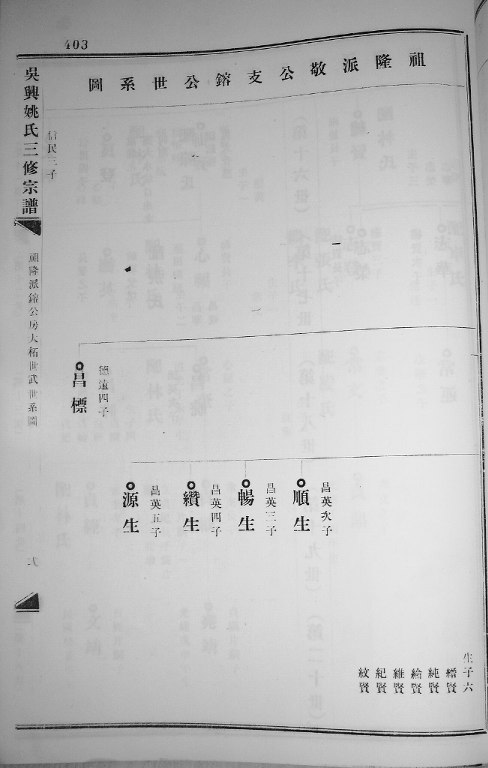 403
祖隆派敬公支鎔公世系圖
生子六
縉賢
純賢
綸賢
維賢
紀賢
紋賢
順生
昌英次子
暢生
昌英三子
纘生
昌英四子
源生
昌英五子
昌標
德遠四子
信民三子
吳興姚氏三修宗譜
祖隆派鎔公房大柘世武世系圖